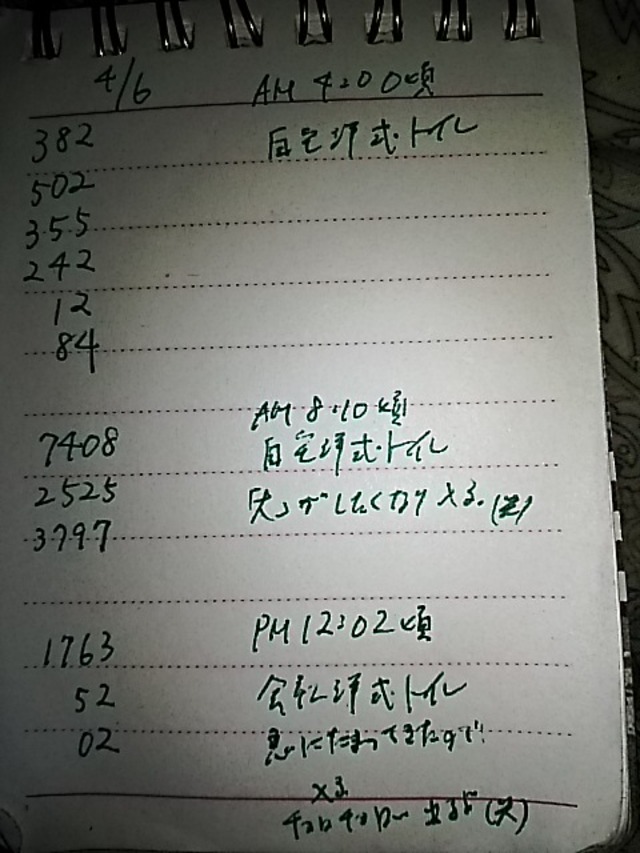 4/6 AM 4:00頃
382 自宅洋式トイレ
502
355
242
12
84
AM 8:10頃
7408 自宅洋式トイレ
2525 「大」がしたくなり
3797
PM 12:02頃
1763
52 会社洋式トイレ
02 急にたまってきたので
チョロチョロ 出るが (笑)